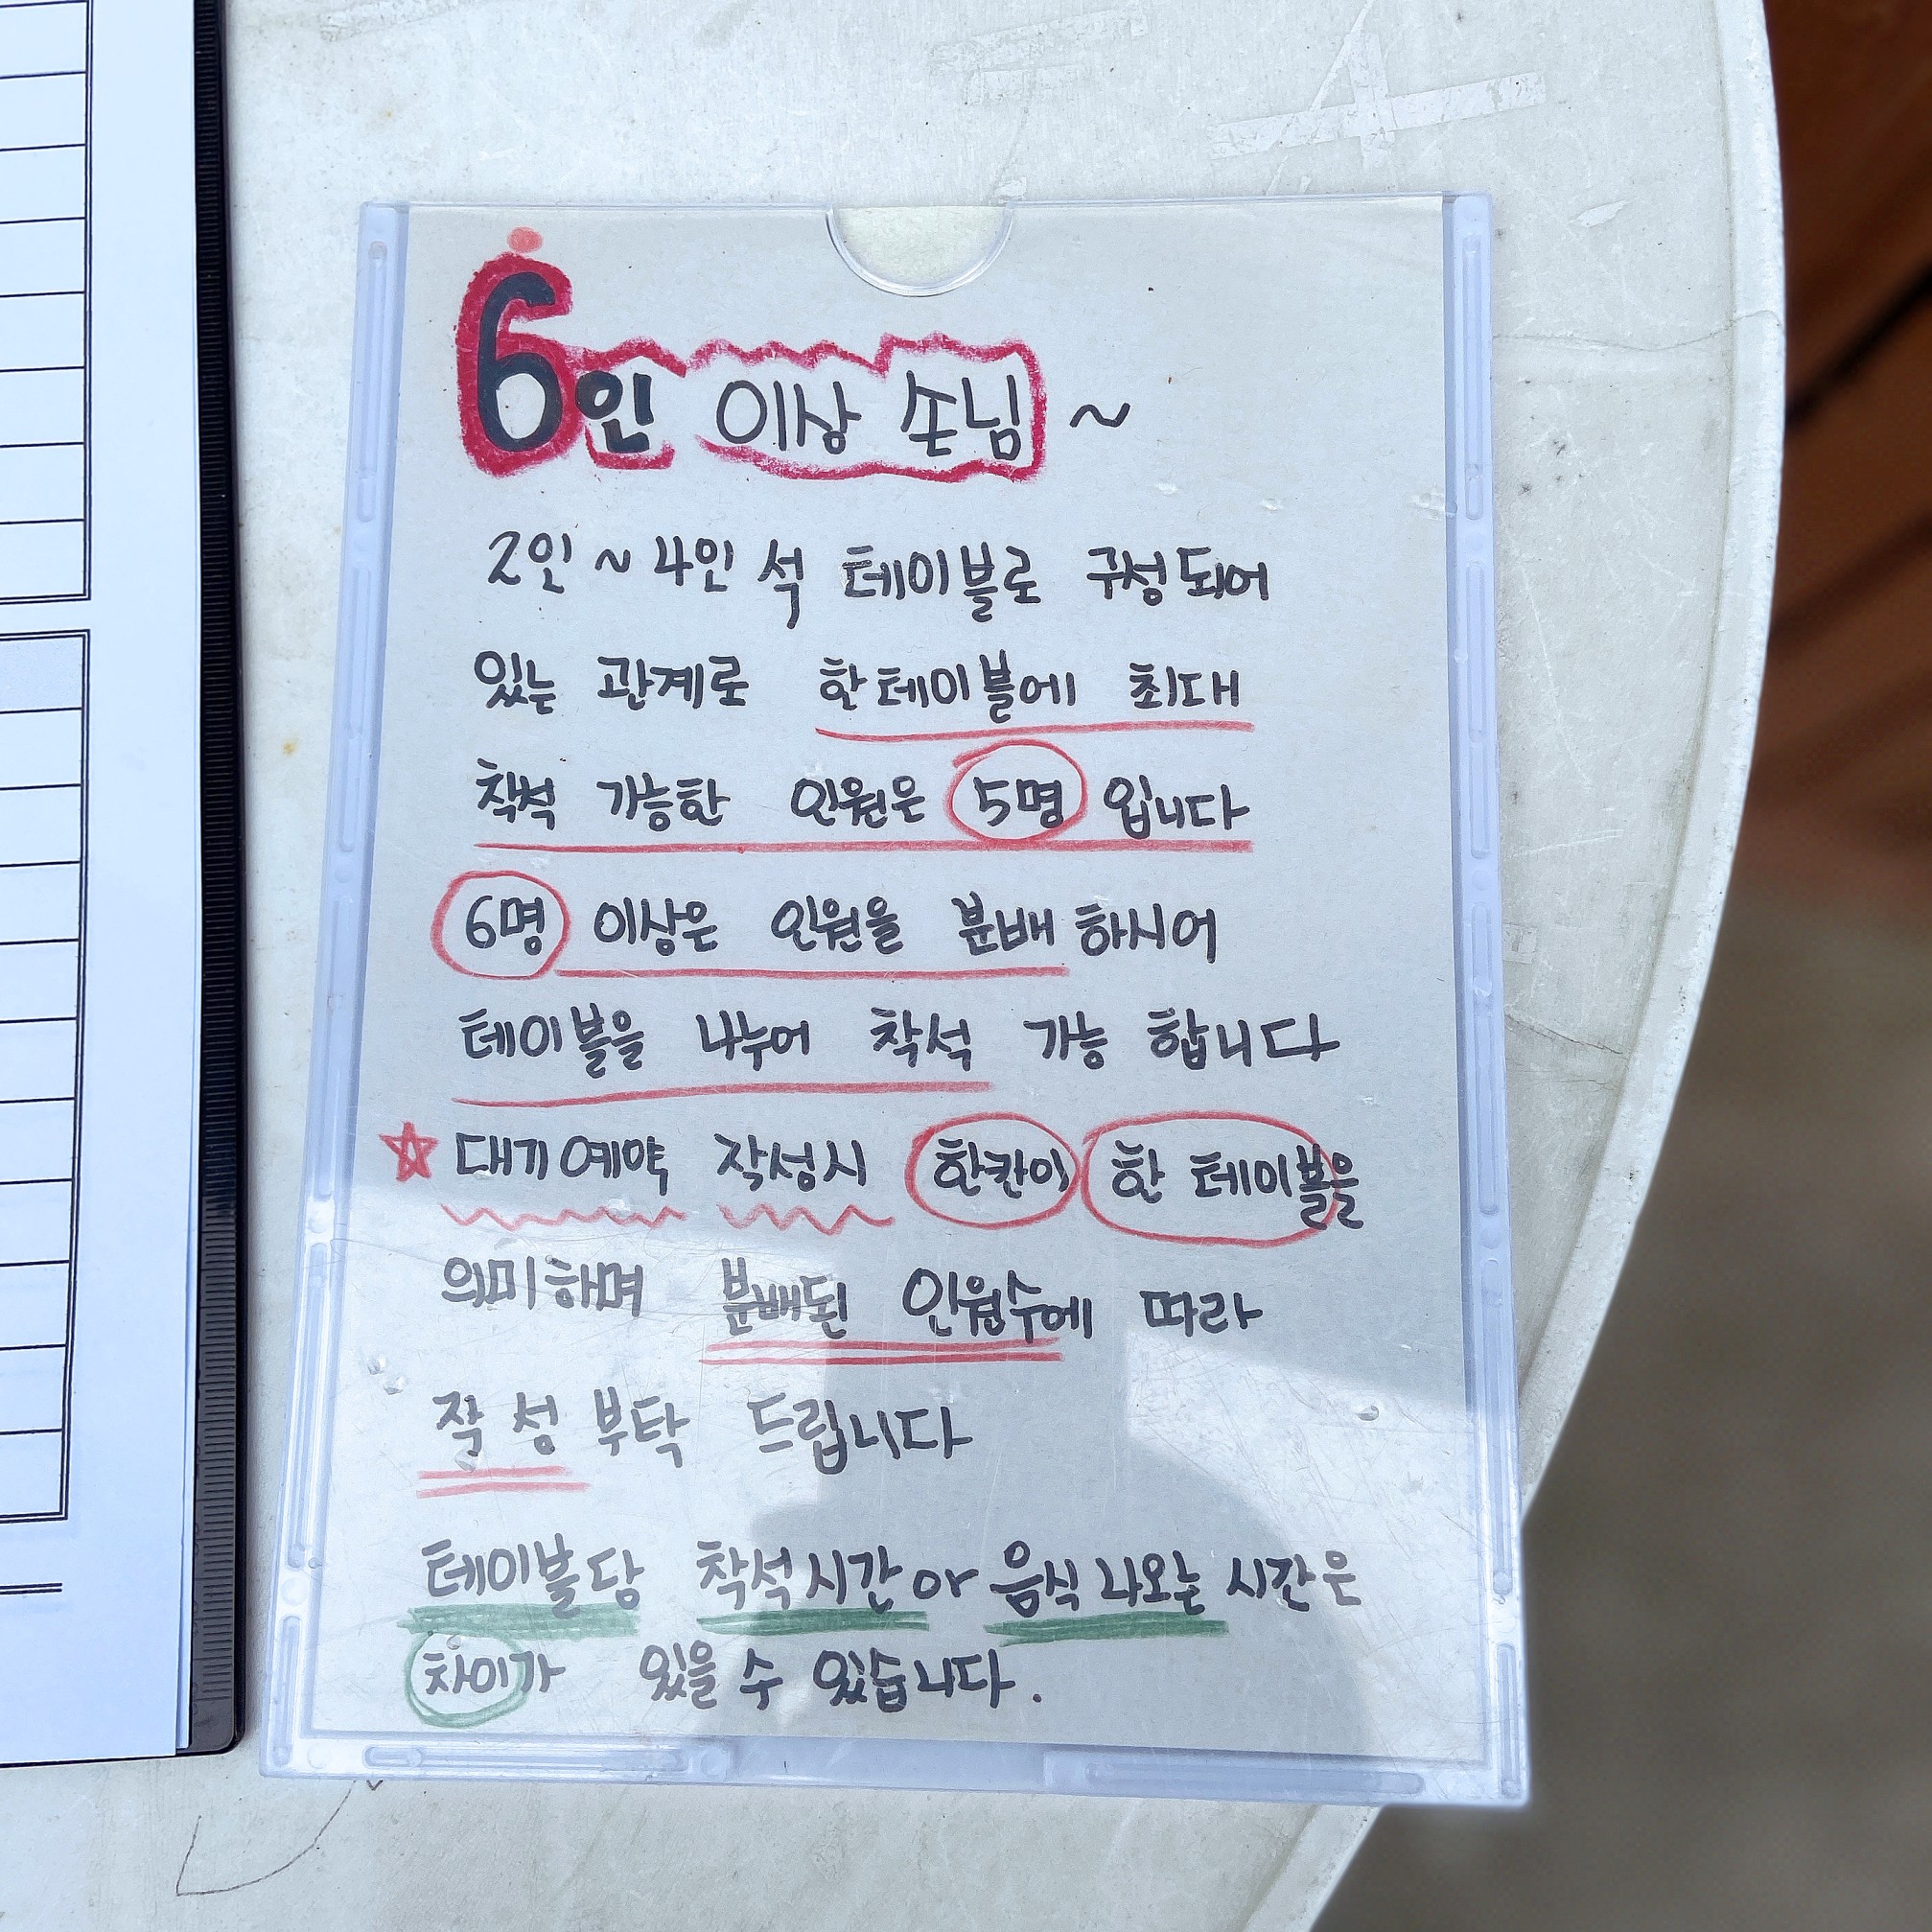 6인 이상 손님 ~
2인 ~ 4인 석 테이블로 구성되어
있는 관계로 한테이블에 최대
착석 가능한 인원은 5명 입니다
6명 이상은 인원을 분배 하시어
테이블을 나누어 착석 가능 합니다
☆ 대기예약 작성시 한칸이 한 테이블을
의미하며 분배된 인원수에 따라
작성 부탁 드립니다
테이블당 착석시간 or 음식 나오는 시간은
차이가 있을 수 있습니다.